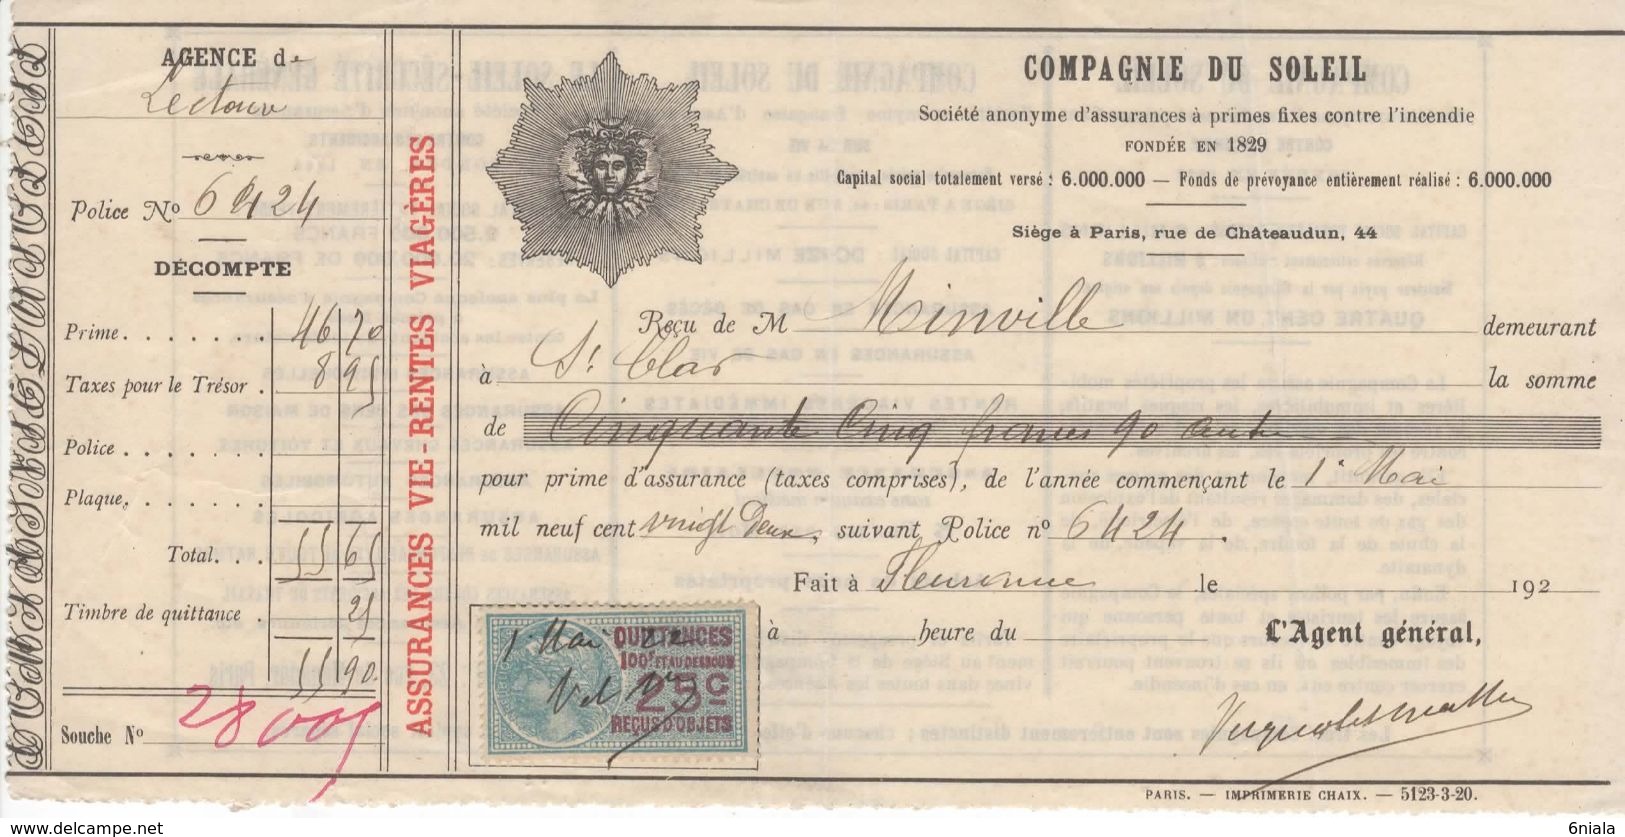 AGENCE d
Lectoure
Police No 6424
DÉCOMPTE
Prime 46 70
Taxes pour le Trésor 8 95
Police
Plaque
Total 55 65
Timbre de quittance 25
55 90
Souche No 28005
ASSURANCES VIE-RENTES VIAGÈRES
COMPAGNIE DU SOLEIL
Société anonyme d'assurances à primes fixes contre l'incendie
FONDÉE EN 1829
Capital social totalement versé : 6.000.000 — Fonds de prévoyance entièrement réalisé : 6.000.000
Siège à Paris, rue de Châteaudun, 44
Reçu de M Minville demeurant
à St Clar la somme
de Cinquante Cinq francs 90 cent
pour prime d'assurance (taxes comprises), de l'année commençant le 1er Mai
mil neuf cent vingt Deux, suivant Police no 6424.
Fait à Fleurance le 192
à heure du L'Agent général,
1 Mai 22
QUITTANCES
100F ET AU DESSOUS
25c
REÇUS D'OBJETS
PARIS. — IMPRIMERIE CHAIX. — 5123-3-20.
6niala